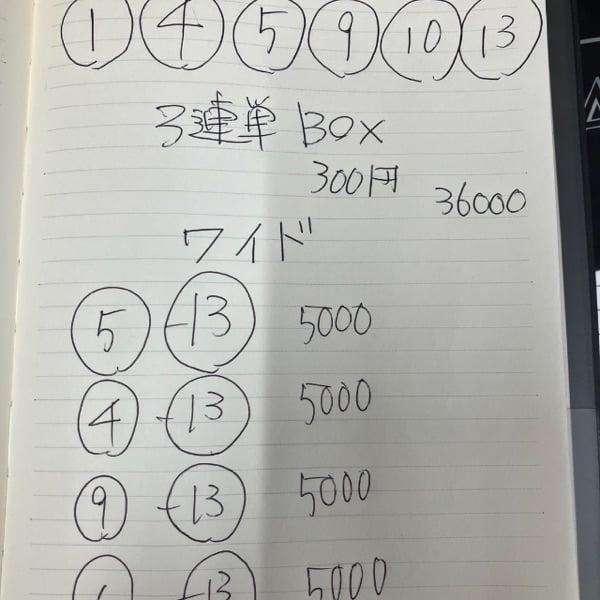 ① ④ ⑤ ⑨ ⑩ ⑬
3連単 BOX
300円 36000
ワイド
⑤-⑬ 5000
④-⑬ 5000
⑨-⑬ 5000
-⑬ 5000